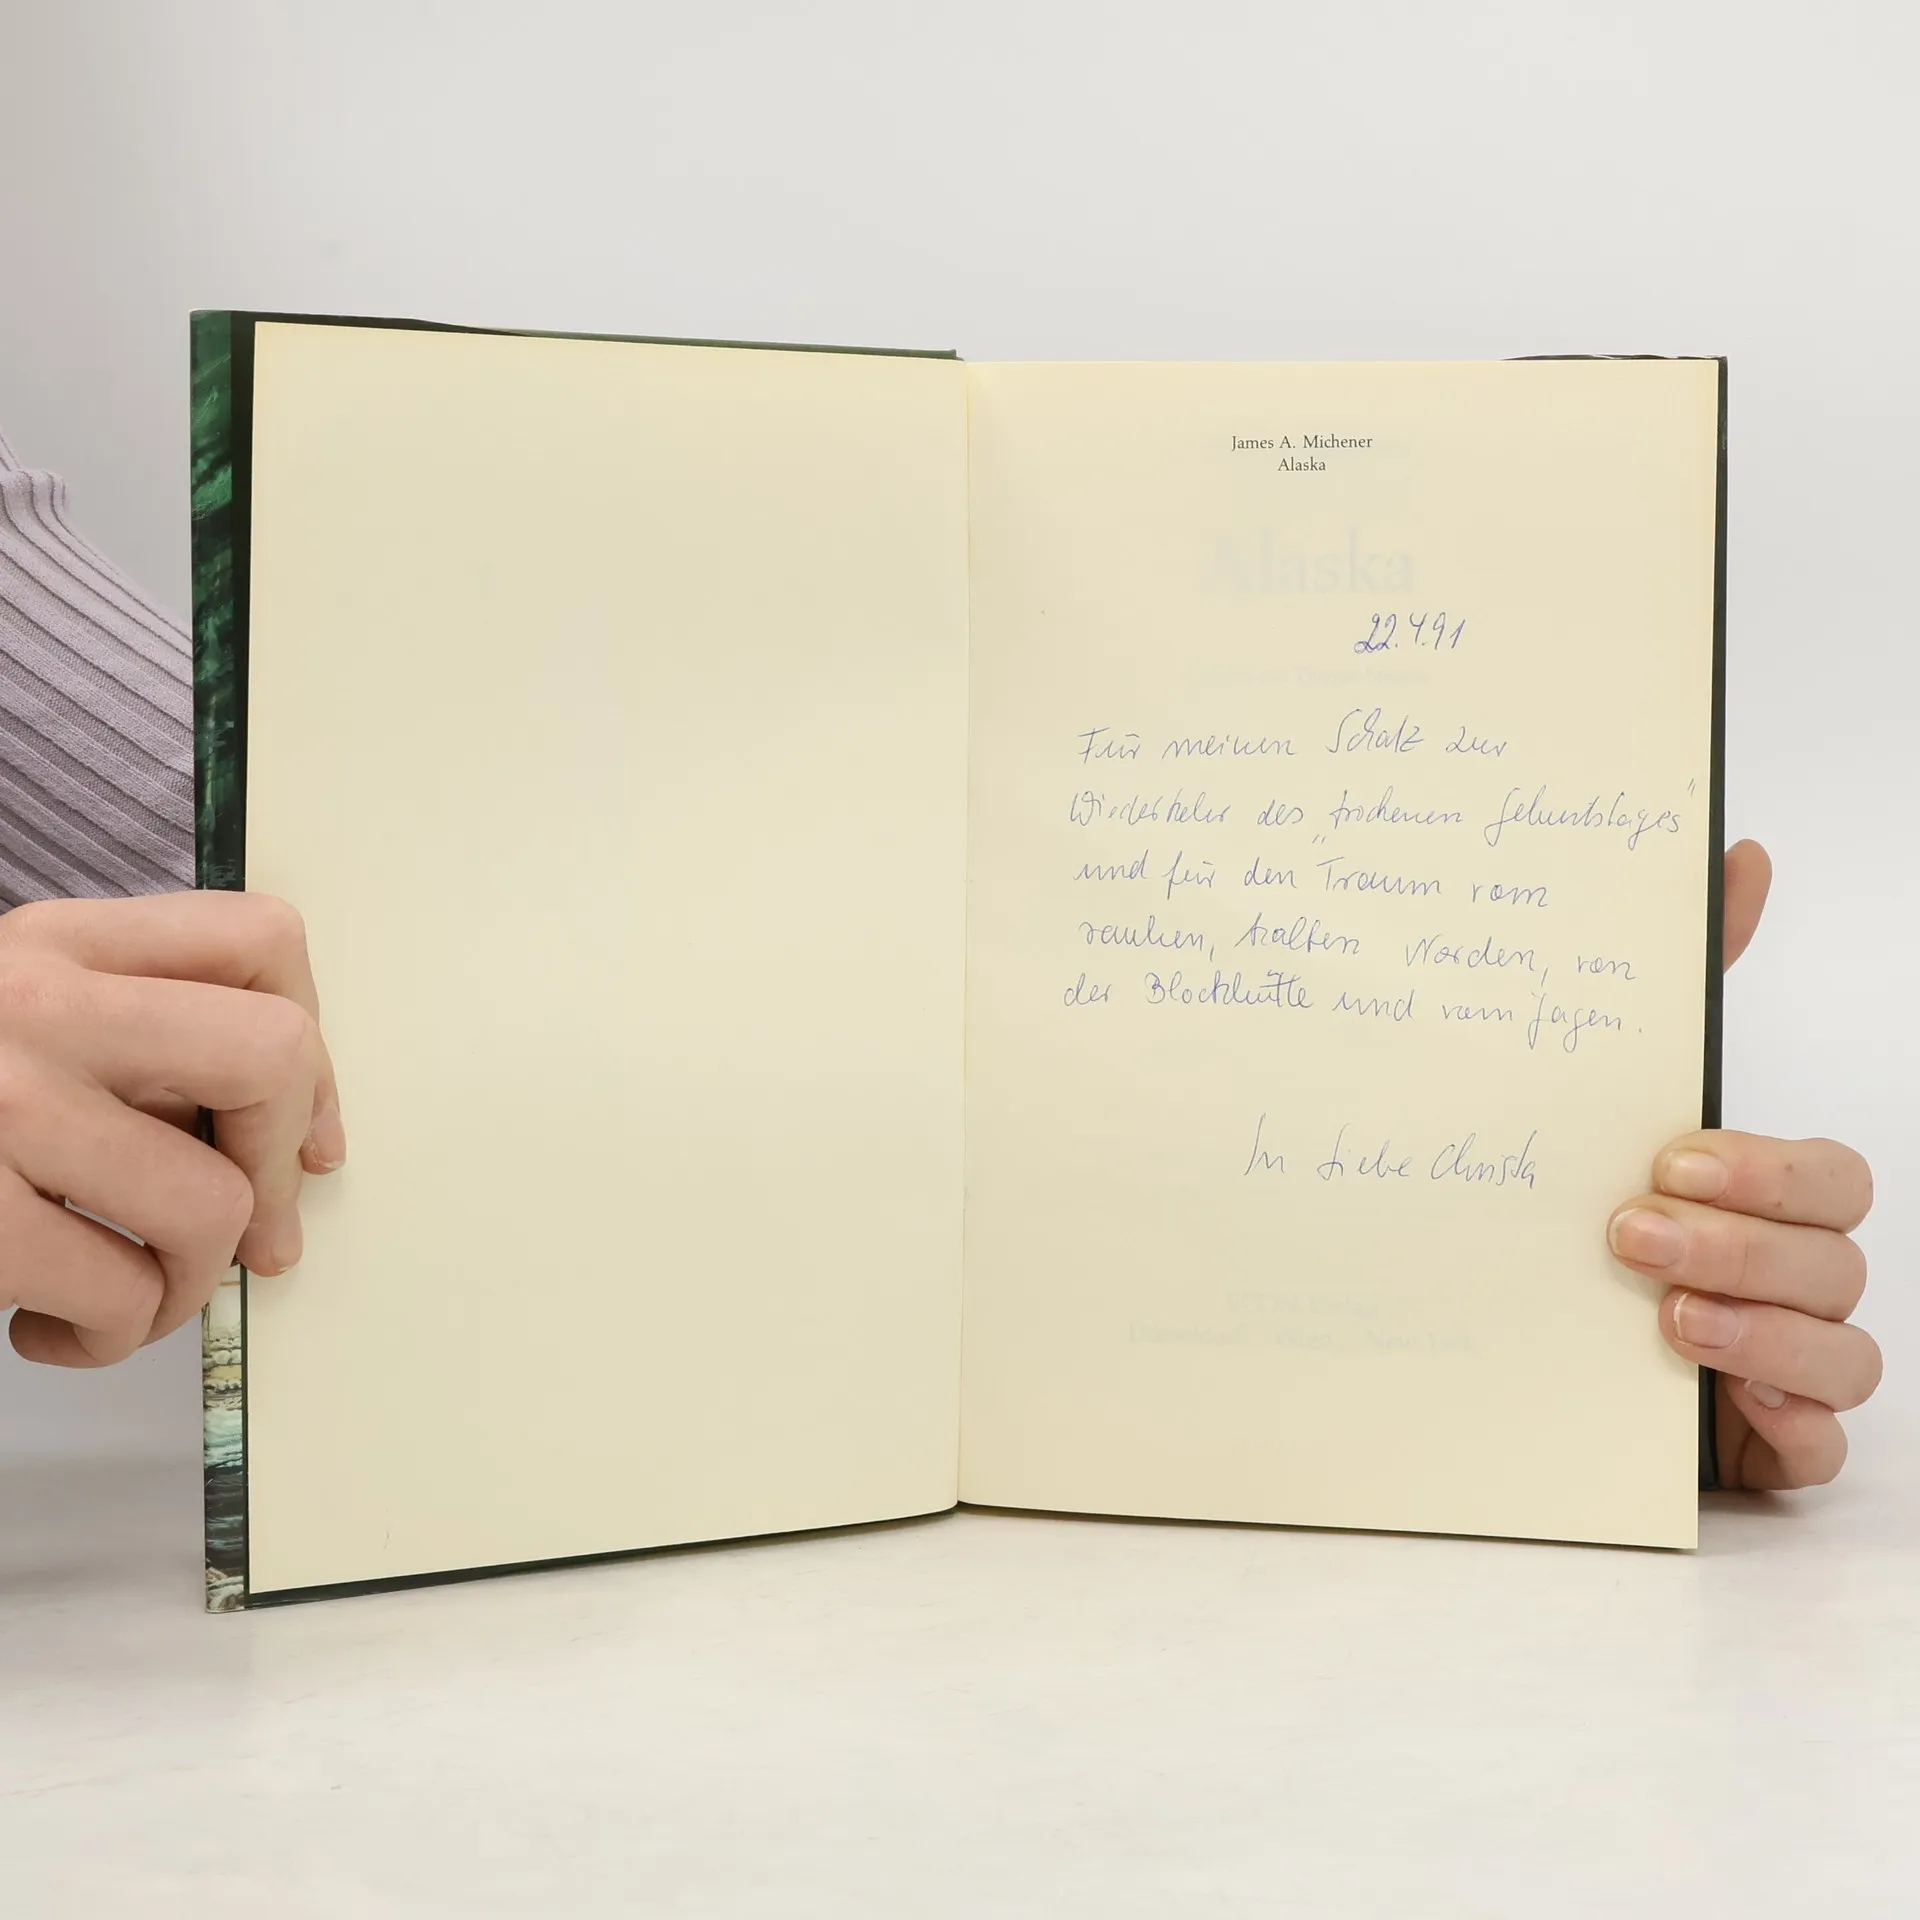 James A. Michener
Alaska
Alaska
22.4.91
Für meinen Schatz zur
Wiederkehr des „trockenen Geburtstages"
und für den Traum vom
rauhen, kalten Norden, von
der Blockhütte und vom Jagen.
In Liebe Christa